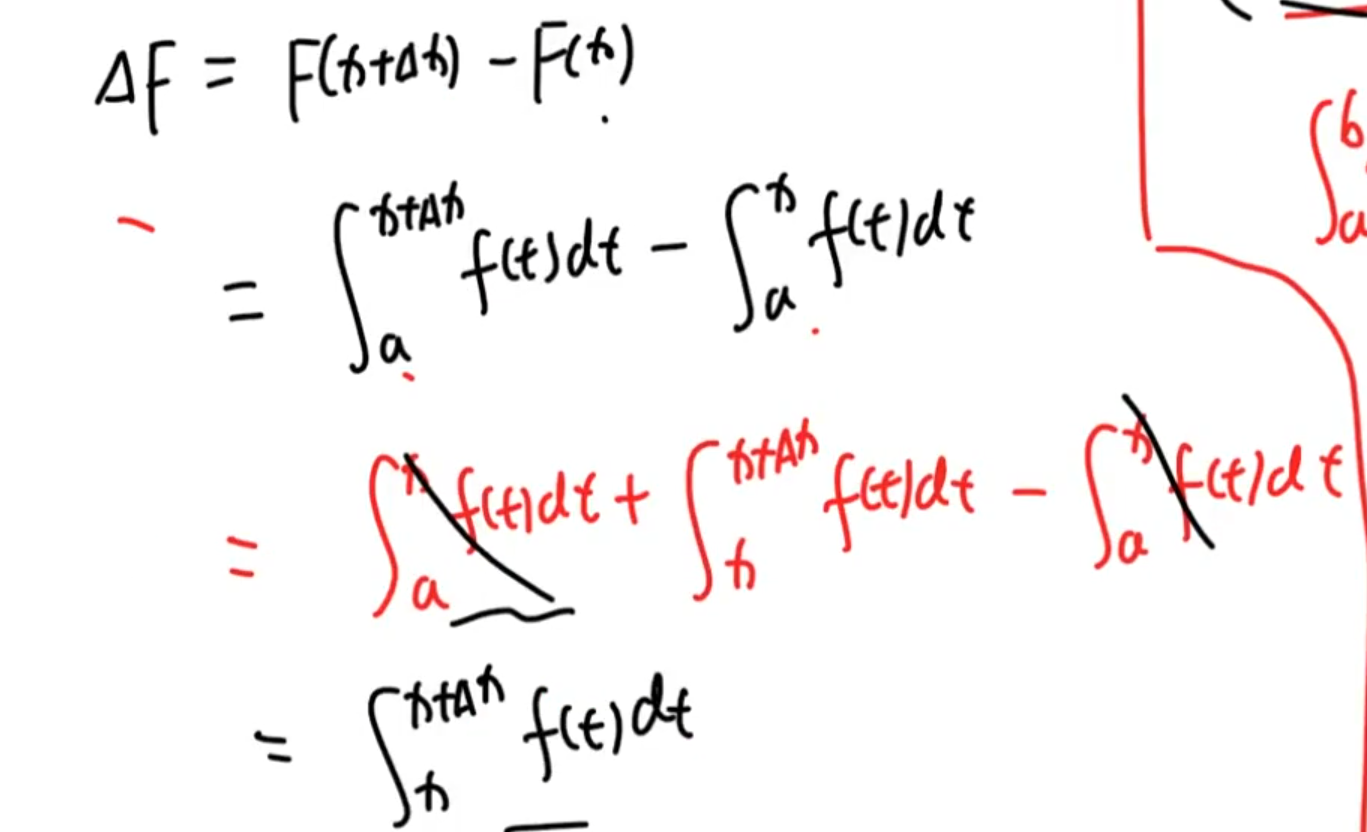 ΔF = F(x+Δx) - F(x)
= ∫_a^{x+Δx} f(t)dt - ∫_a^x f(t)dt
∫_a^b
= ∫_a^x f(t)dt + ∫_x^{x+Δx} f(t)dt - ∫_a^x f(t)dt
= ∫_x^{x+Δx} f(t)dt